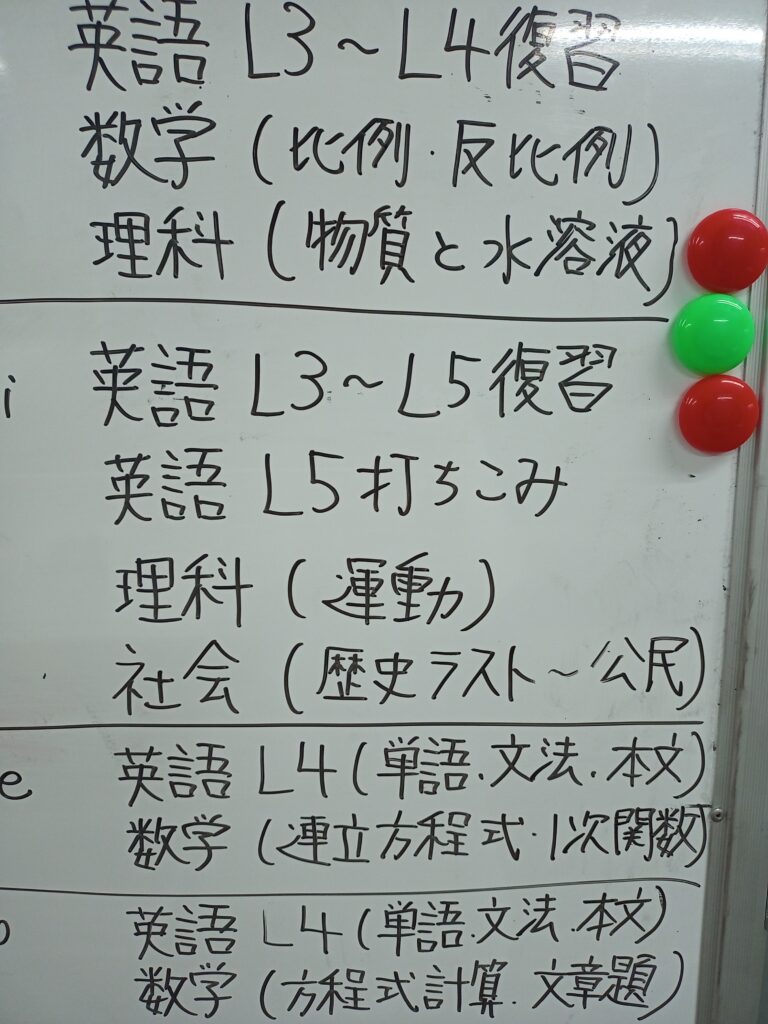 英語 L3～L4復習
数学 (比例・反比例)
理科 (物質と水溶液)
i 英語 L3～L5復習
英語 L5打ちこみ
理科 (運動)
社会 (歴史ラスト～公民)
e 英語 L4 (単語.文法.本文)
数学 (連立方程式・1次関数)
英語 L4 (単語.文法.本文)
数学 (方程式計算.文章題)